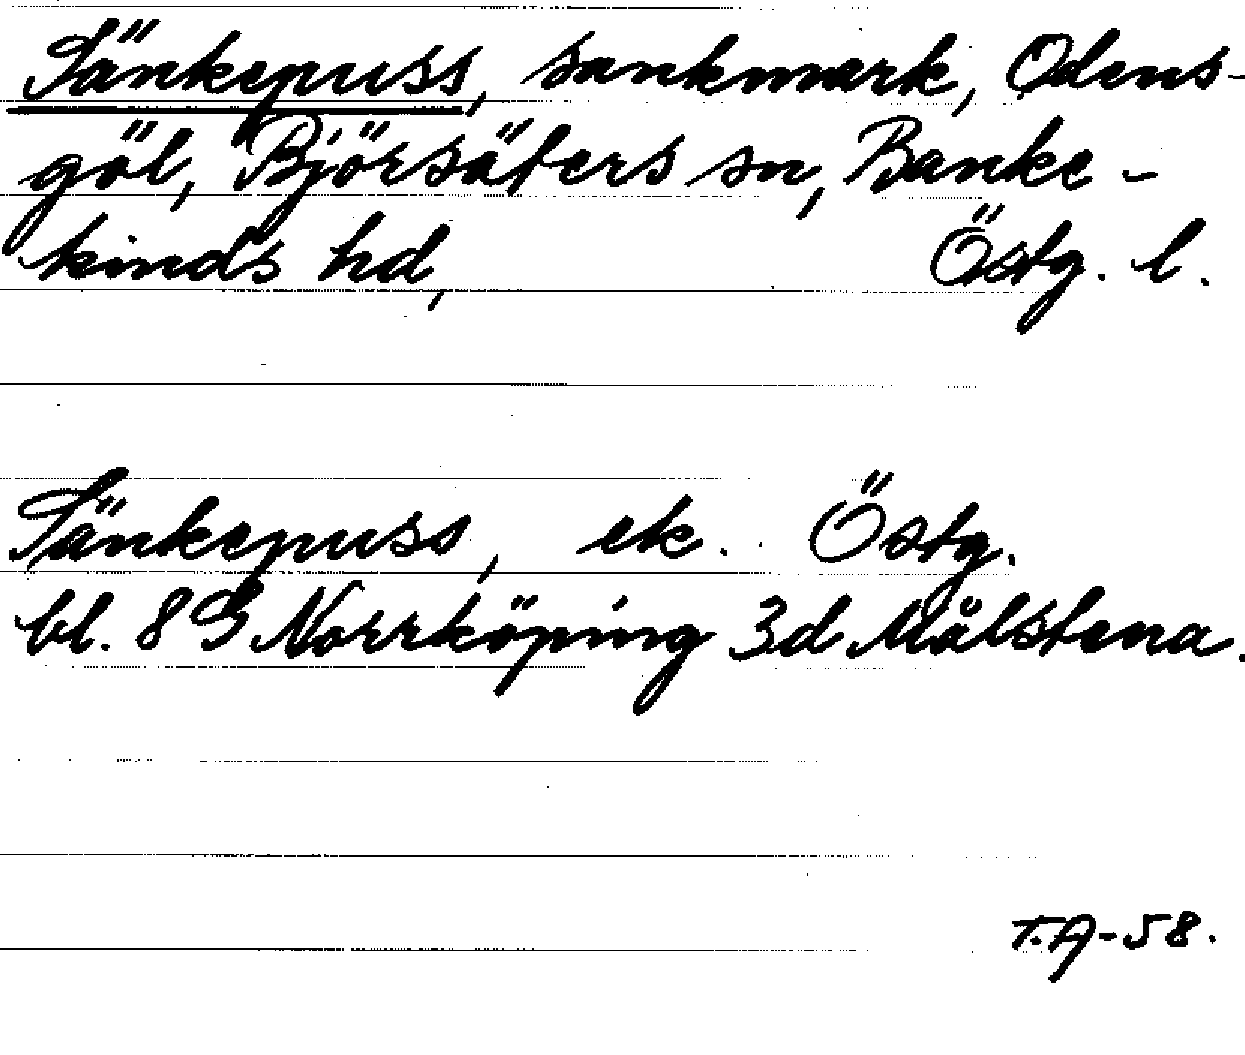 Sänkepuss, sankmark, Odens-
göl, Björsäters sn, Banke-
kinds hd, Östg. l.
Sänkepuss, ek. Östg.
bl. 8 G Norrköping 3d Målstena.
T.A-58.